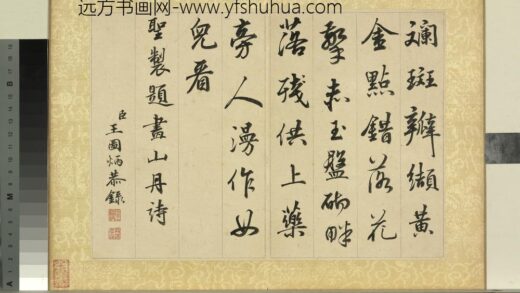 远方书画网-www.yfshuhua.com
斓斑瓣缬黄
金點錯落花
擎赤玉盤砌畔
落殘供上藥
旁人漫作女
兒看
聖製題畫山丹詩
臣王圖炳恭錄